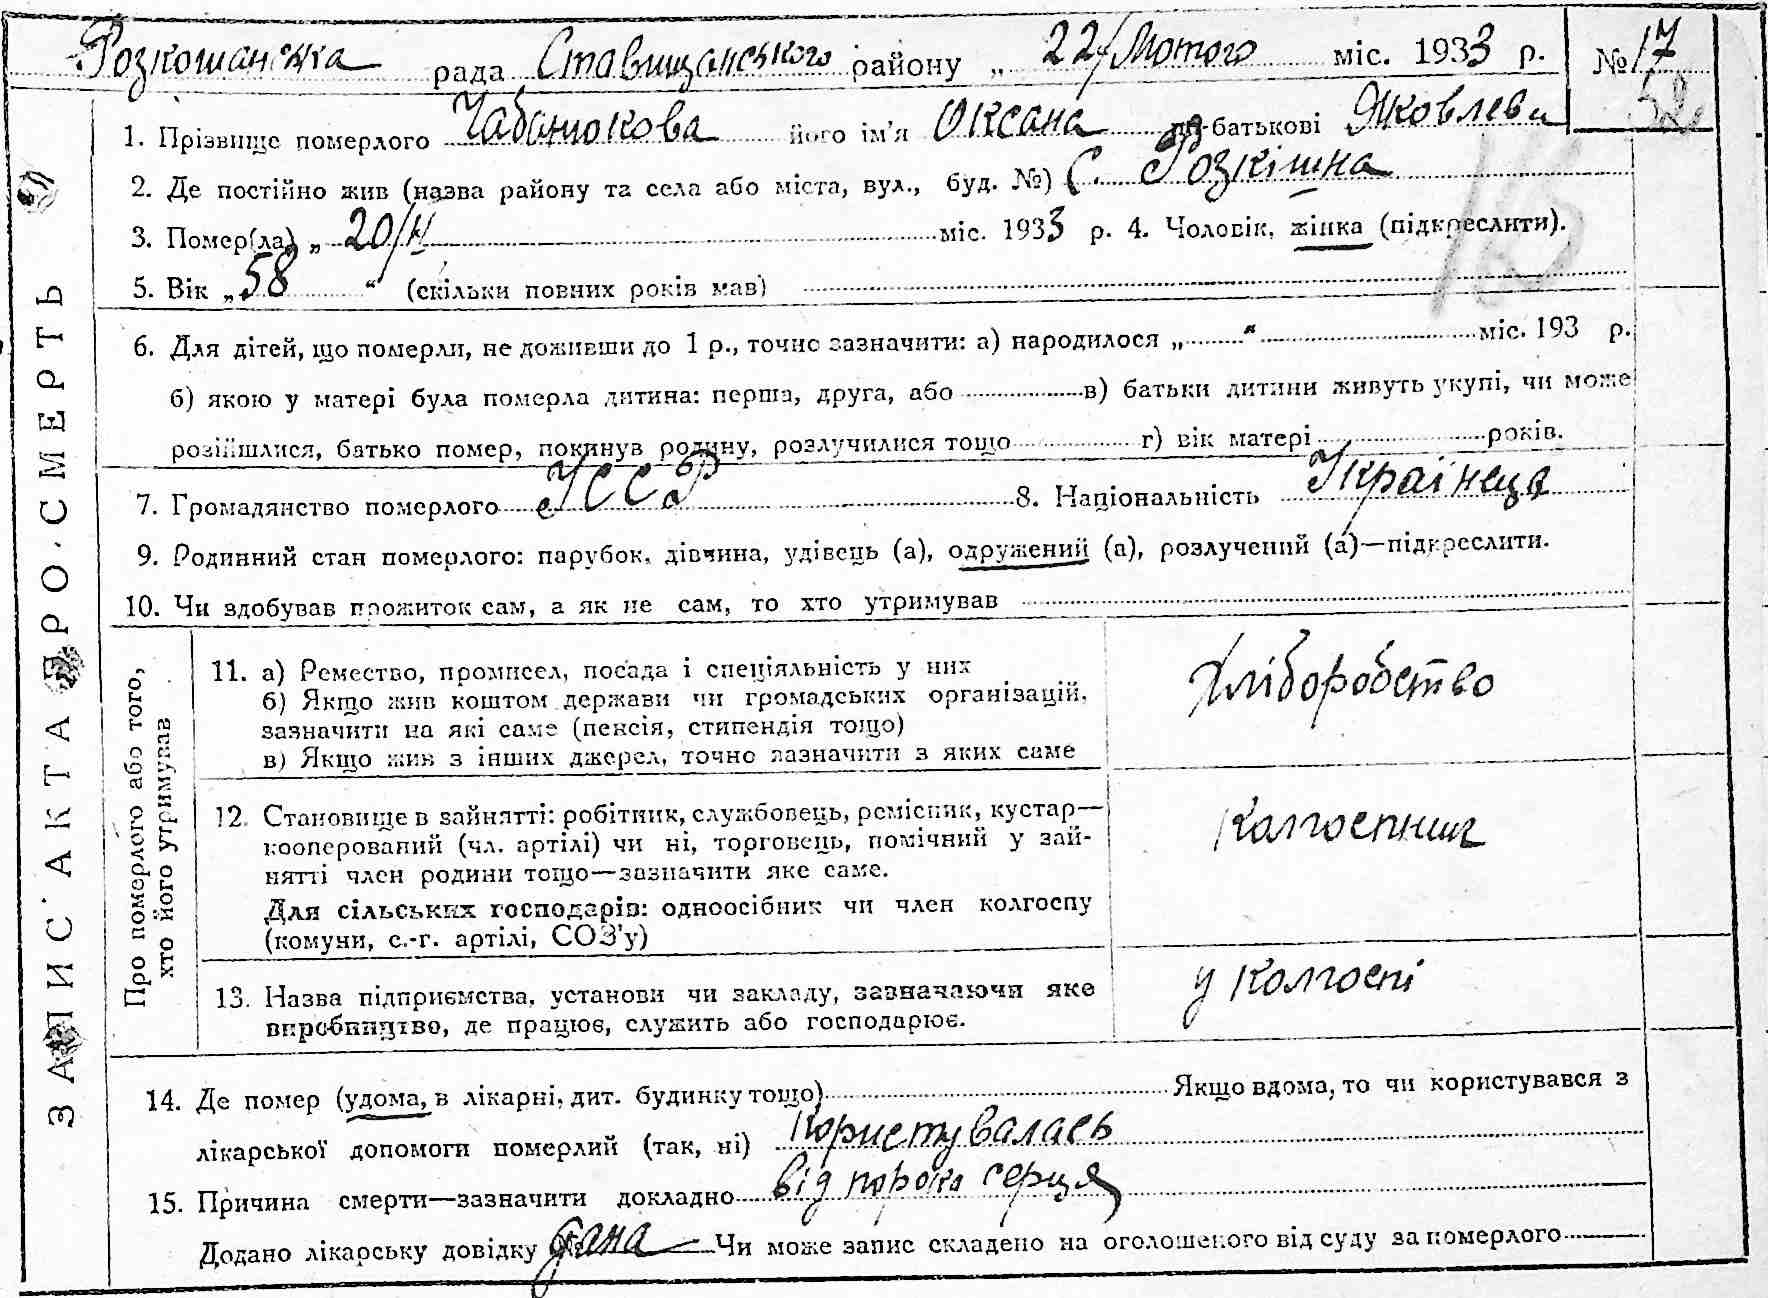 Розкошанська рада Ставищанського району „ 22/Лютого міс. 1933 р. № 17
52
1. Прізвище померлого Чабанюкова його ім'я Оксана по-батькові Яковлевн
2. Де постійно жив (назва району та села або міста, вул., буд. №) С. Розкішна
3. Помер(ла) „ 20/II міс. 1933 р. 4. Чоловік, жінка (підкреслити).
5. Вік „ 58 “ (скільки повних років мав)
6. Для дітей, що померли, не доживши до 1 р., точно зазначити: а) народилося „ “ міс. 193 р.
б) якою у матері була померла дитина: перша, друга, або в) батьки дитини живуть укупі, чи може
розійшлися, батько помер, покинув родину, розлучилися тощо г) вік матері років.
7. Громадянство померлого УССР 8. Національність Українець
9. Родинний стан померлого: парубок, дівчина, удівець (а), одружений (а), розлучений (а)—підкреслити.
10. Чи здобував прожиток сам, а як не сам, то хто утримував
ЗАПИС АКТА ПРО СМЕРТЬ
Про померлого або того,
хто його утримував
11. а) Ремество, промисел, посада і спеціяльність у них
б) Якщо жив коштом держави чи громадських організацій,
зазначити на які саме (пенсія, стипендія тощо)
в) Якщо жив з інших джерел, точно зазначити з яких саме
Хліборобство
12. Становище в зайнятті: робітник, службовець, ремісник, кустар—
кооперований (чл. артілі) чи ні, торговець, помічний у зай-
нятті член родини тощо—зазначити яке саме.
Для сільських господарів: одноосібник чи член колгоспу
(комуни, с.-г. артілі, СОЗ'у)
Колгоспниц
13. Назва підприємства, установи чи закладу, зазначаючи яке
виробництво, де працює, служить або господарює.
у Колгоспі
14. Де помер (удома, в лікарні, дит. будинку тощо) Якщо вдома, то чи користувався з
лікарської допомоги померлий (так, ні) Користувалась
15. Причина смерти—зазначити докладно від порока серця
Додано лікарську довідку № дана Чи може запис складено на оголошеного від суду за померлого